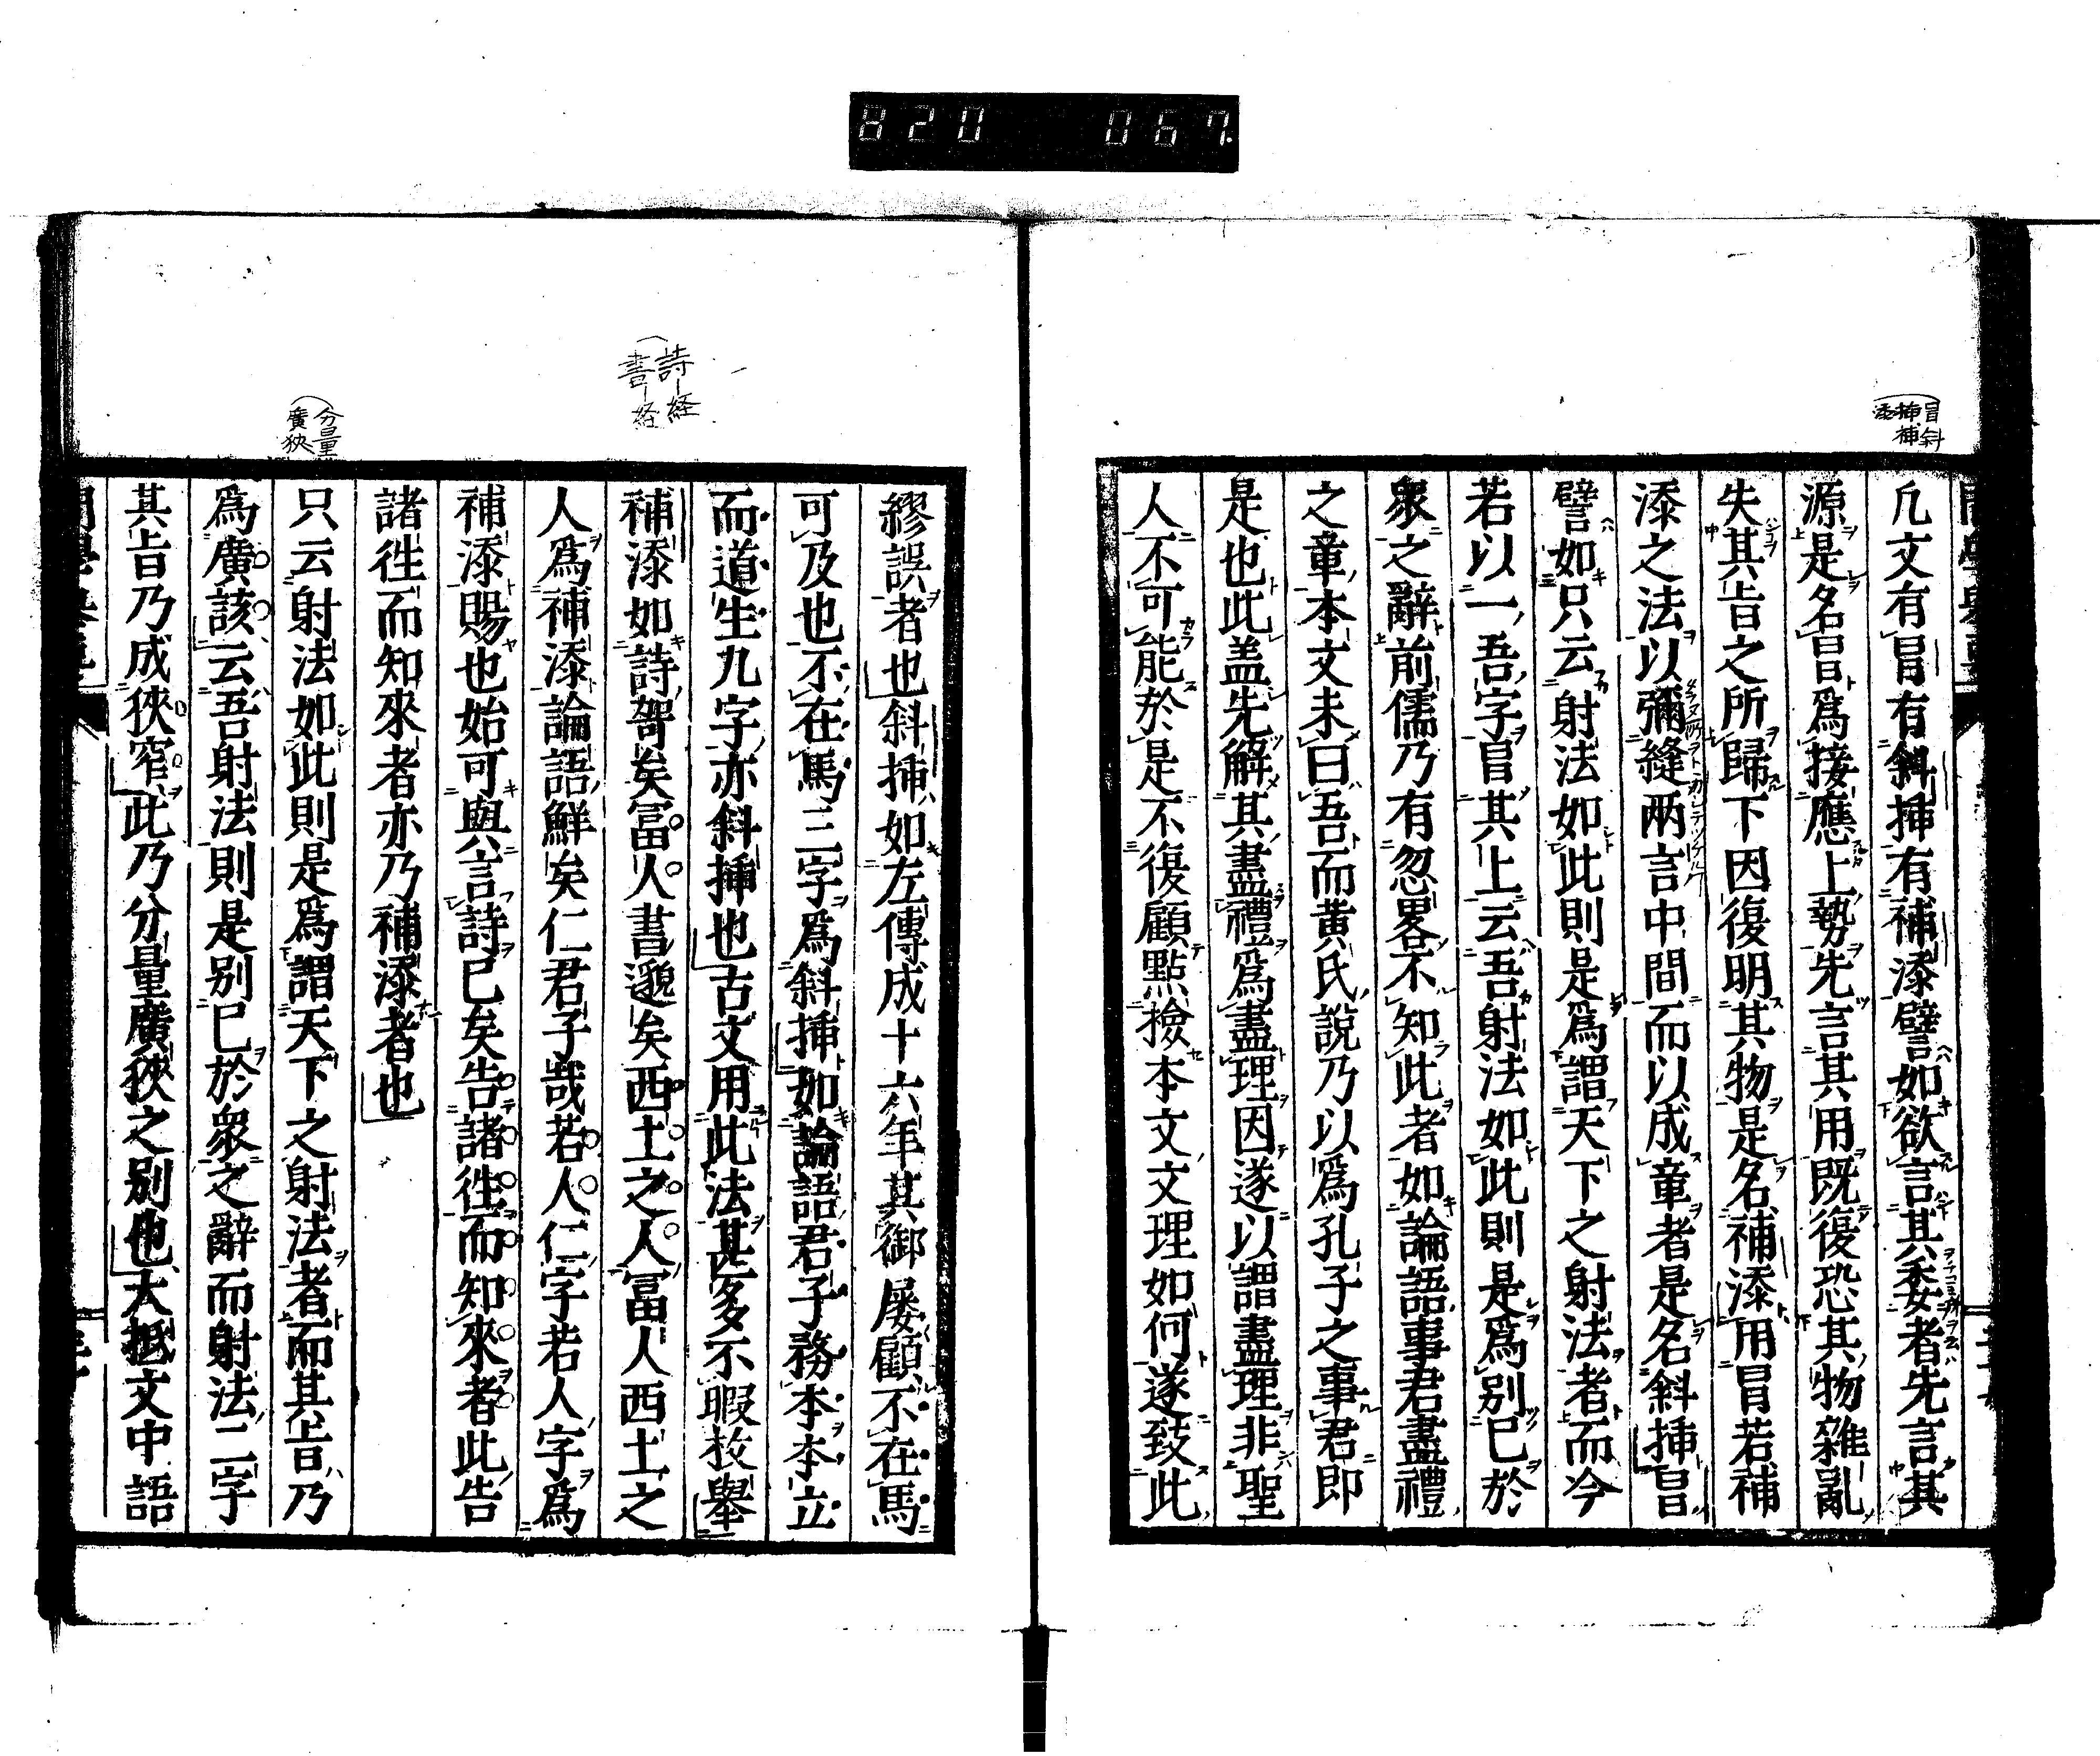 820 067
冒斜
挿補
添
凢文有冐有斜挿有補添譬如欲言其委者先言其
源是名冐爲接應上勢先言其用既復恐其物雜亂
失其㫖之所歸下因復明其物是名補添用冐若補
添之法以彌縫兩言中間而以成章者是名斜挿冐
譬如只云射法如此則是爲謂天下之射法者而今
若以一吾字冐其上云吾射法如此則是爲別已於
衆之辭前儒乃有忽畧不知此者如論語事君盡禮
之章本文未曰吾而黄氏說乃以爲孔子之事君即
是也此盖先解其盡禮爲盡理因遂以謂盡理非聖
人不可能於是不復顧點撿本文文理如何遂致此
詩経
書経
分量
廣狹
繆誤者也斜挿如左傳成十六年其御屡顧不在馬
可及也不在馬三字爲斜挿如論語君子務本本立
而道生九字亦斜挿也古文用此法甚多不暇枚舉
補添如詩哿矣冨人書逖矣西土之人冨人西土之
人爲補添論語鮮矣仁君子哉若人仁字若人字爲
補添賜也始可與言詩已矣告諸徃而知來者此告
諸徃而知來者亦乃補添者也
只云射法如此則是爲謂天下之射法者而其㫖乃
爲廣該云吾射法則是別已於衆之辭而射法二字
其㫖乃成狹窄此乃分量廣狹之別也大抵文中語